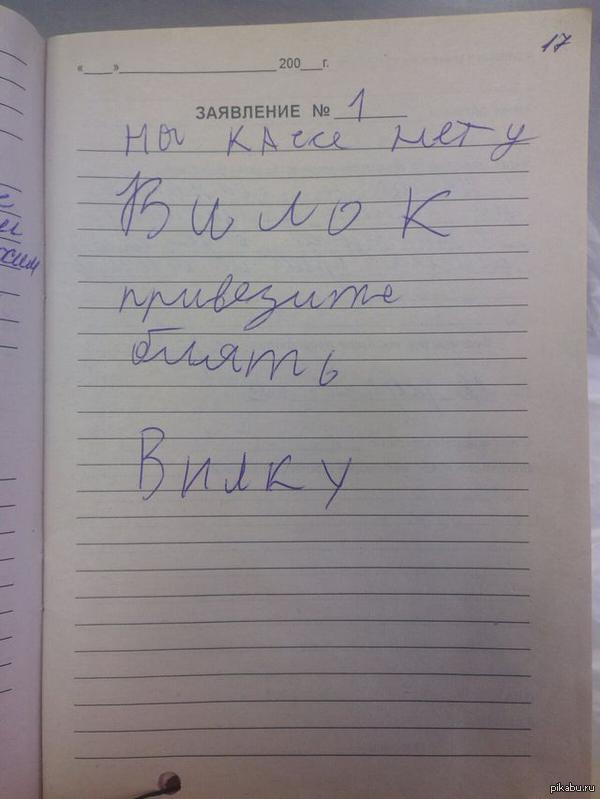 17
«____»____________________200___г.
ЗАЯВЛЕНИЕ № 1
на кассе нету
Вилок
привезите
блять
Вилку
pikabu.ru